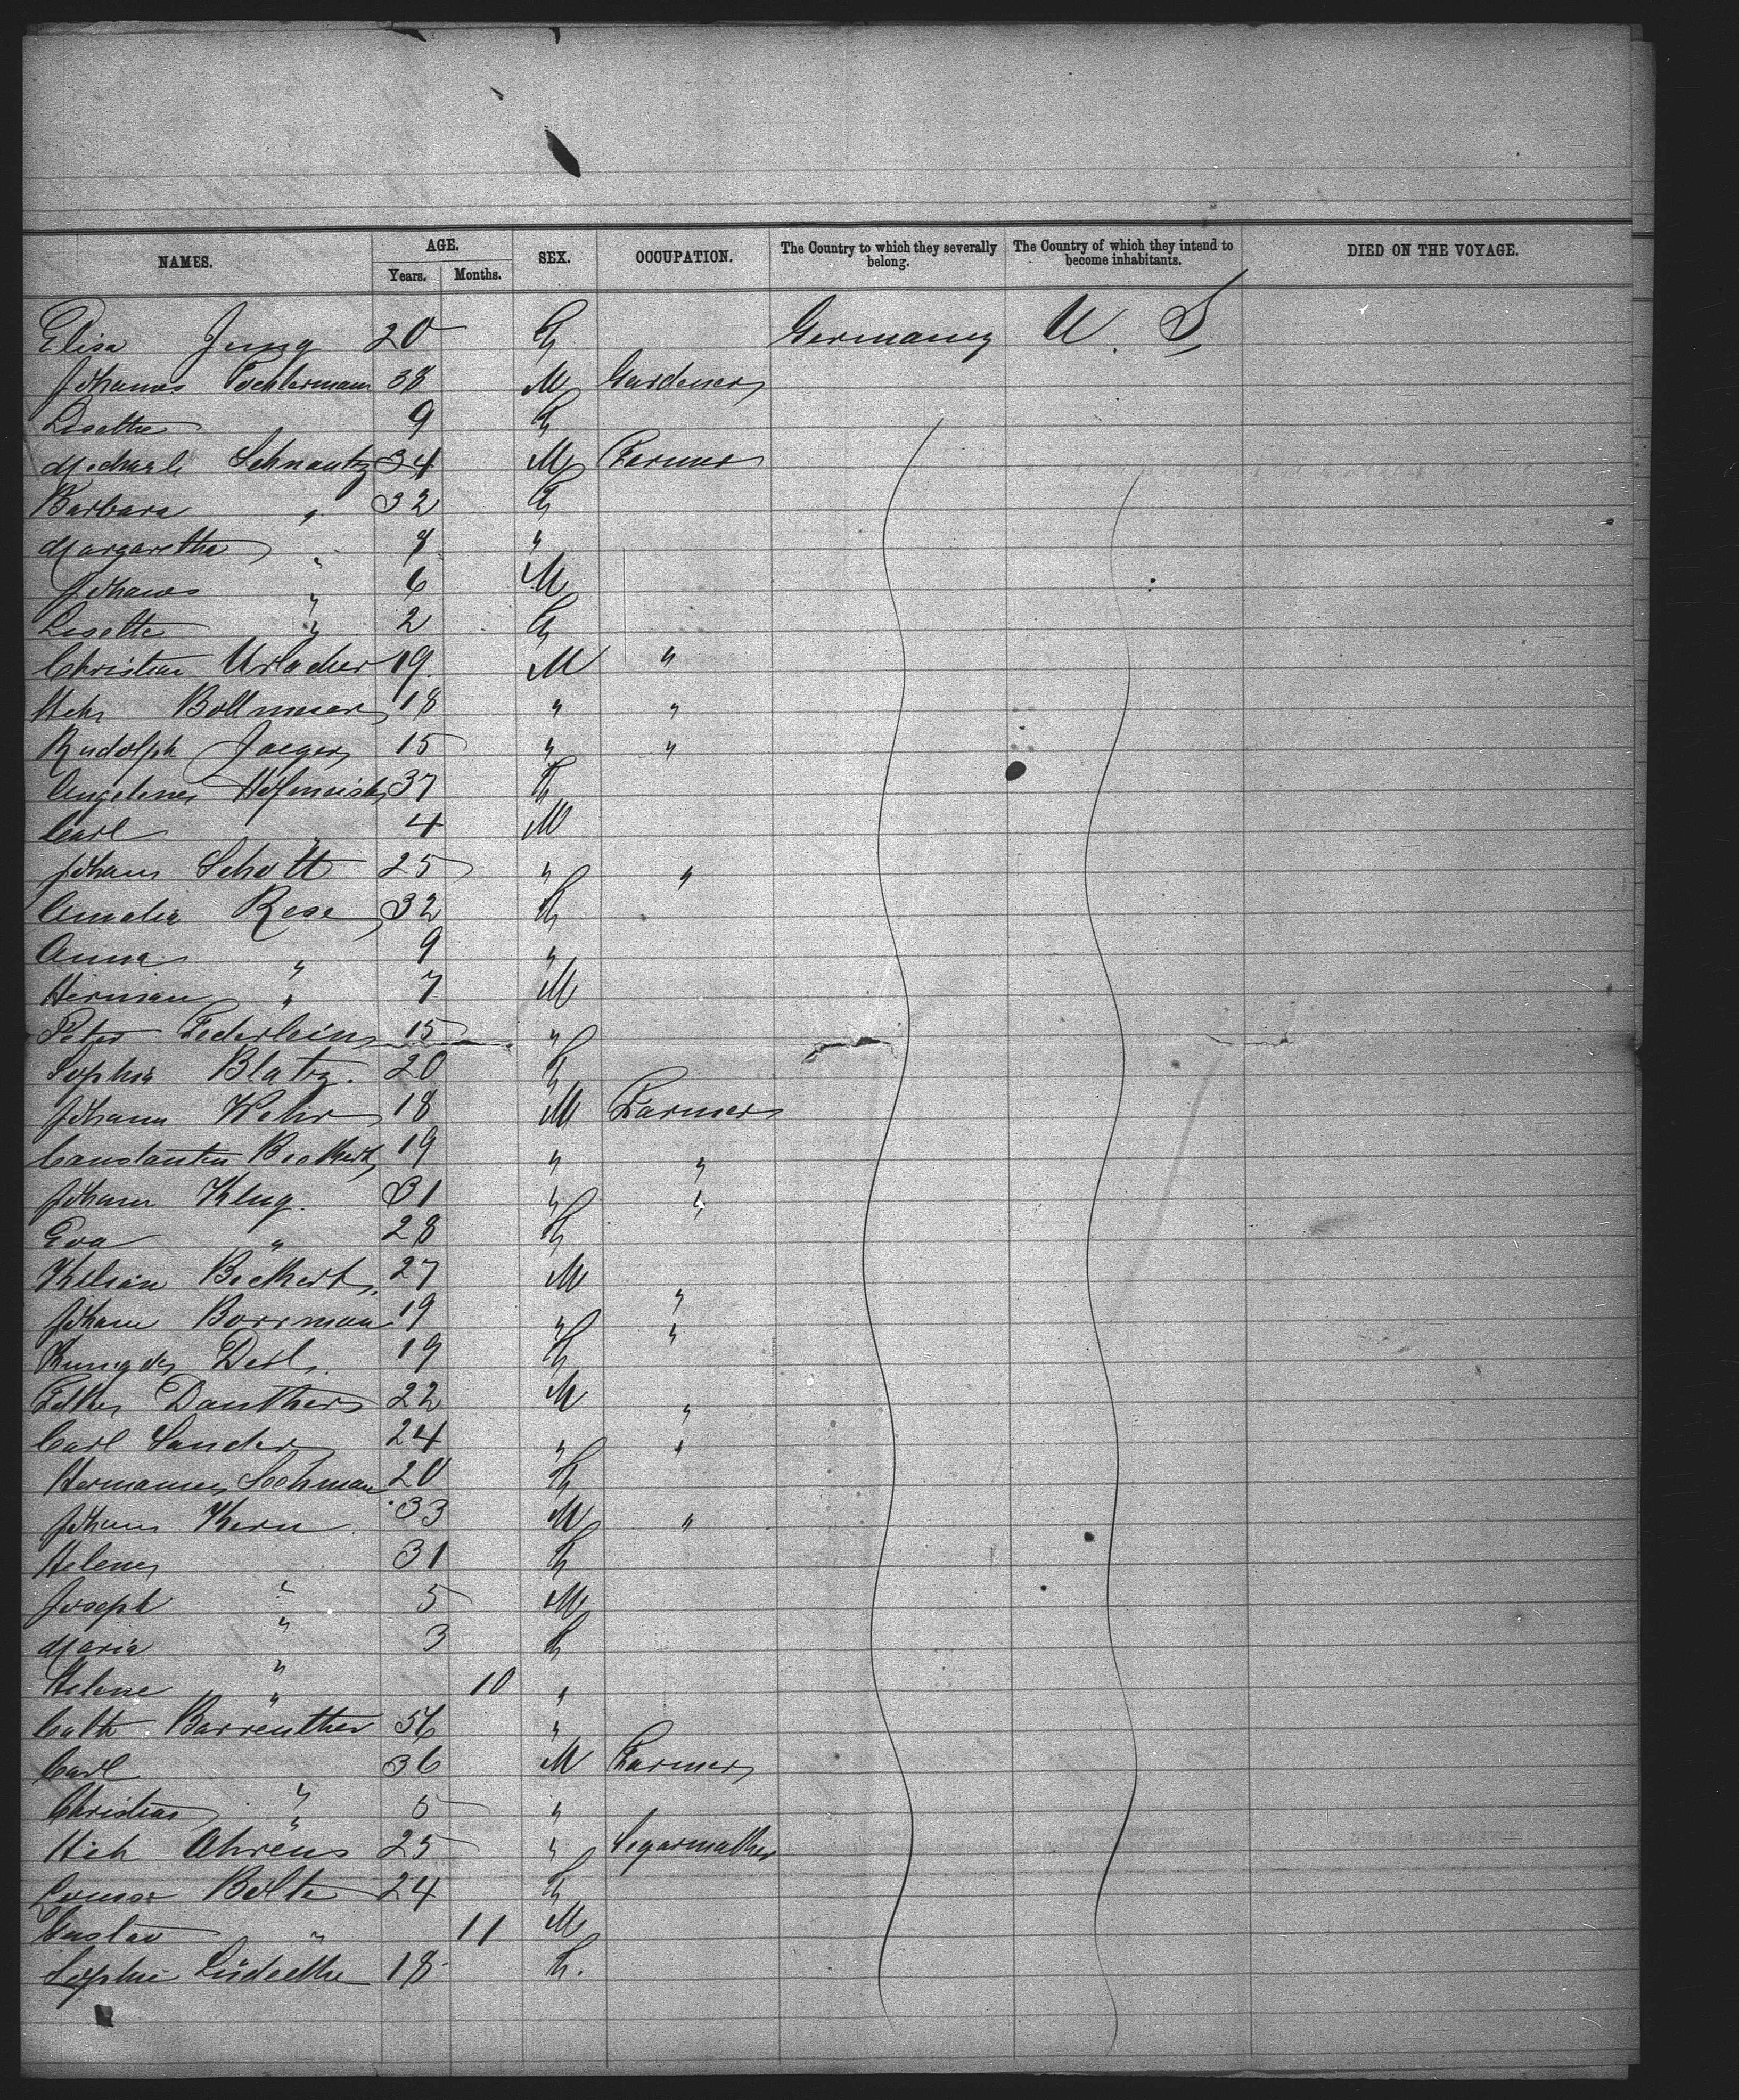 NAMES. AGE. Years. Months. SEX. OCCUPATION. The Country to which they severally belong. The Country of which they intend to become inhabitants. DIED ON THE VOYAGE.
Elisa Jung 20 F Germany U. S.
Johannes 38 M Gardener
Lisette 9 F
Michael Schnautz 34 M Farmer
Barbara " 32 F
Margaretha " 8 "
Johannes " 6 M
Lisette " 2 F
Christian Urlacher 19 M "
Hch Bollmeier 18 " "
Rudolph Jaeger 15 " "
Angelena Hofmeister 37 F
Carl " 4 M
Johann Schott 25 " "
Amalia Rose 32 F
Anna " 9 "
Herman " 7 M
Peter Federlein 15 "
Sophia Blatz. 20 F
Johann Wehr 18 M Farmer
Constantin Beckert 19 " "
Johann Klug. 31 " "
Eva " 28 F
Kilian Beckert 27 M "
Johann Borrman 19 " "
Kunigde 19 F
Danther 22 M "
Carl Sander 24 " "
Hermanna Lochman 20 F
Johann Kern 33 M "
Helene " 31 F
Joseph " 5 M
Maria " 3 F
Helene " 10 "
Cath Barreuther 56 "
Carl " 36 M Farmer
Christian " 5 "
Hch Ahrens 25 " Segarmaker
Louise Bolte 24 F
Gustav " 11 M
Sophie Lüdecke 18 F.